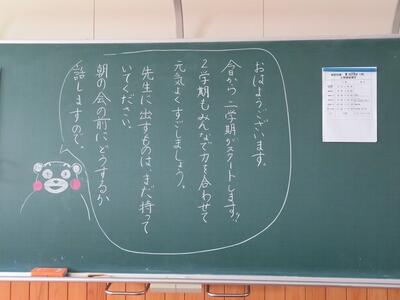 おはようございます。
今日から二学期がスタートします!!
2学期もみんなで力を合わせて
元気よくすごしましょう。
先生に出すものは、まだ持って
いてください。
朝の会の前に、どうするか
話しますので。